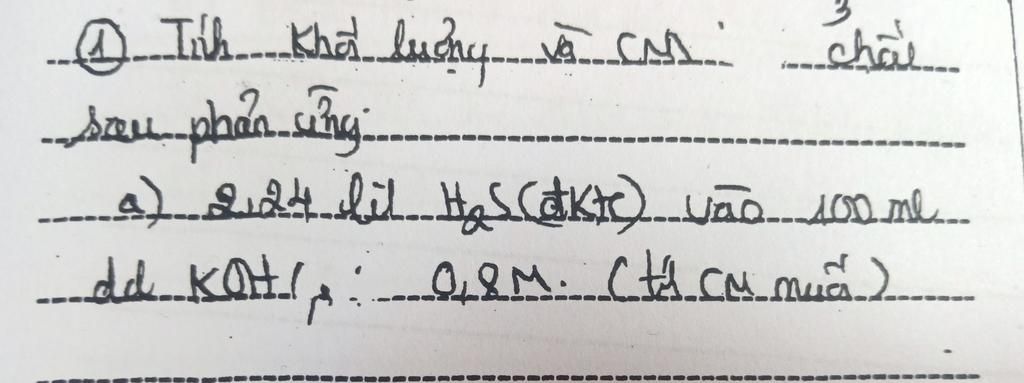 ① Tính khối lượng và CM chất
sau phản ứng:
a) 2,24 lít H₂S (đktc) vào 100 ml
dd KOH : 0,8M. (tí CM muối)